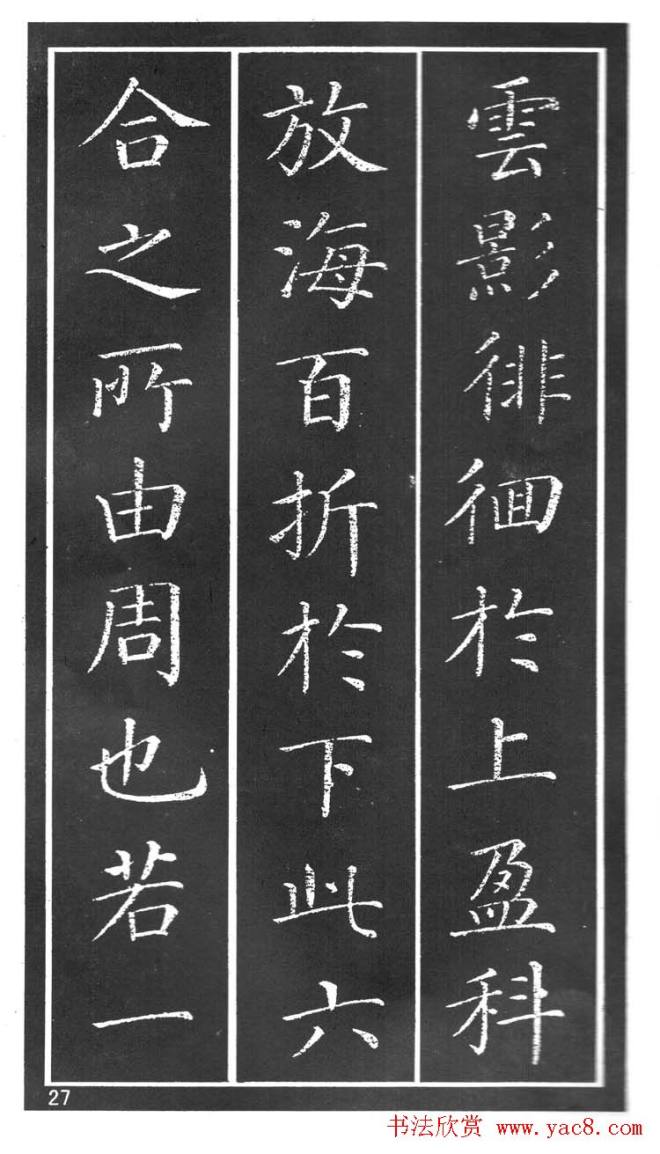 雲影徘徊於上盈科
放海百折於下此六
合之所由周也若一
27
书法欣赏 www.yac8.com